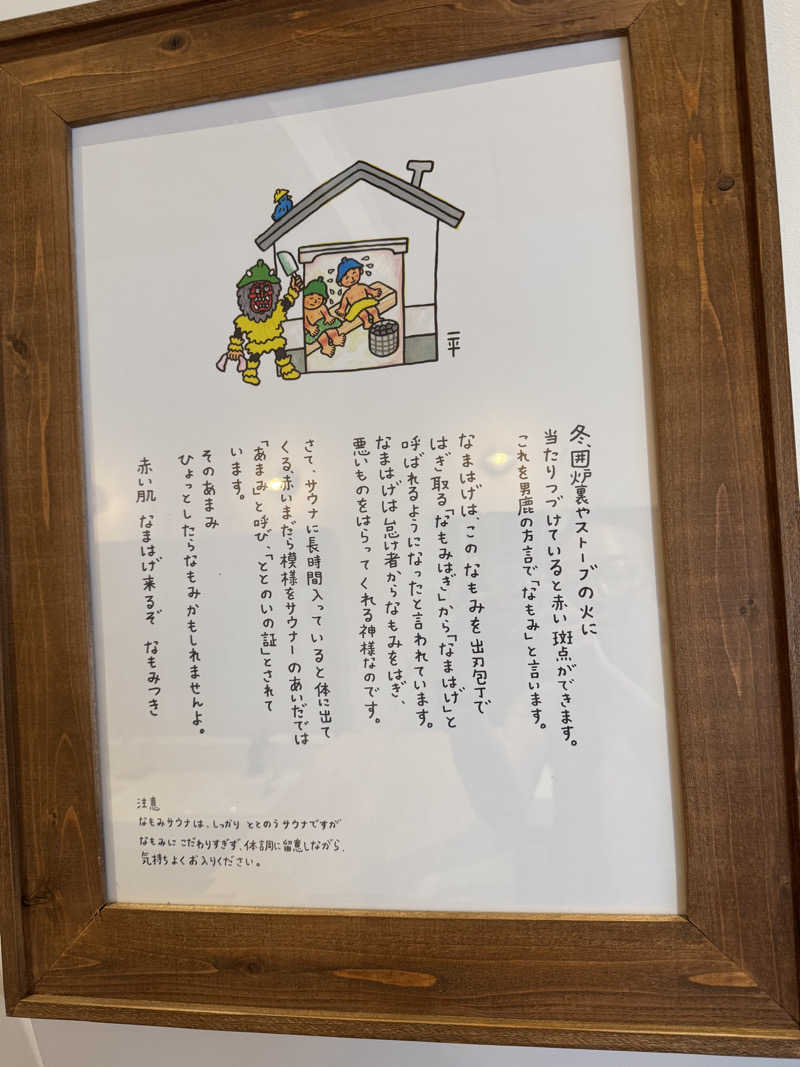 二平
冬、囲炉裏やストーブの火に
当たりつづけていると赤い斑点ができます。
これを男鹿の方言で「なもみ」と言います。
なまはげは、この なもみを出刃包丁で
はぎ取る「なもみはぎ」から「なまはげ」と
呼ばれるようになったと言われています。
なまはげは怠け者からなもみをはぎ、
悪いものをはらってくれる神様なのです。
さて、サウナに長時間入っていると体に出て
くる、赤いまだら模様をサウナーのあいだでは
「あまみ」と呼び、「ととのいの証」とされて
います。
そのあまみ
ひょっとしたらなもみかもしれませんよ。
赤い肌 なまはげ来るぞ なもみつき
注意
なもみサウナは、しっかり ととのうサウナですが
なもみに こだわりすぎず、体調に留意しながら、
気持ちよくお入りください。